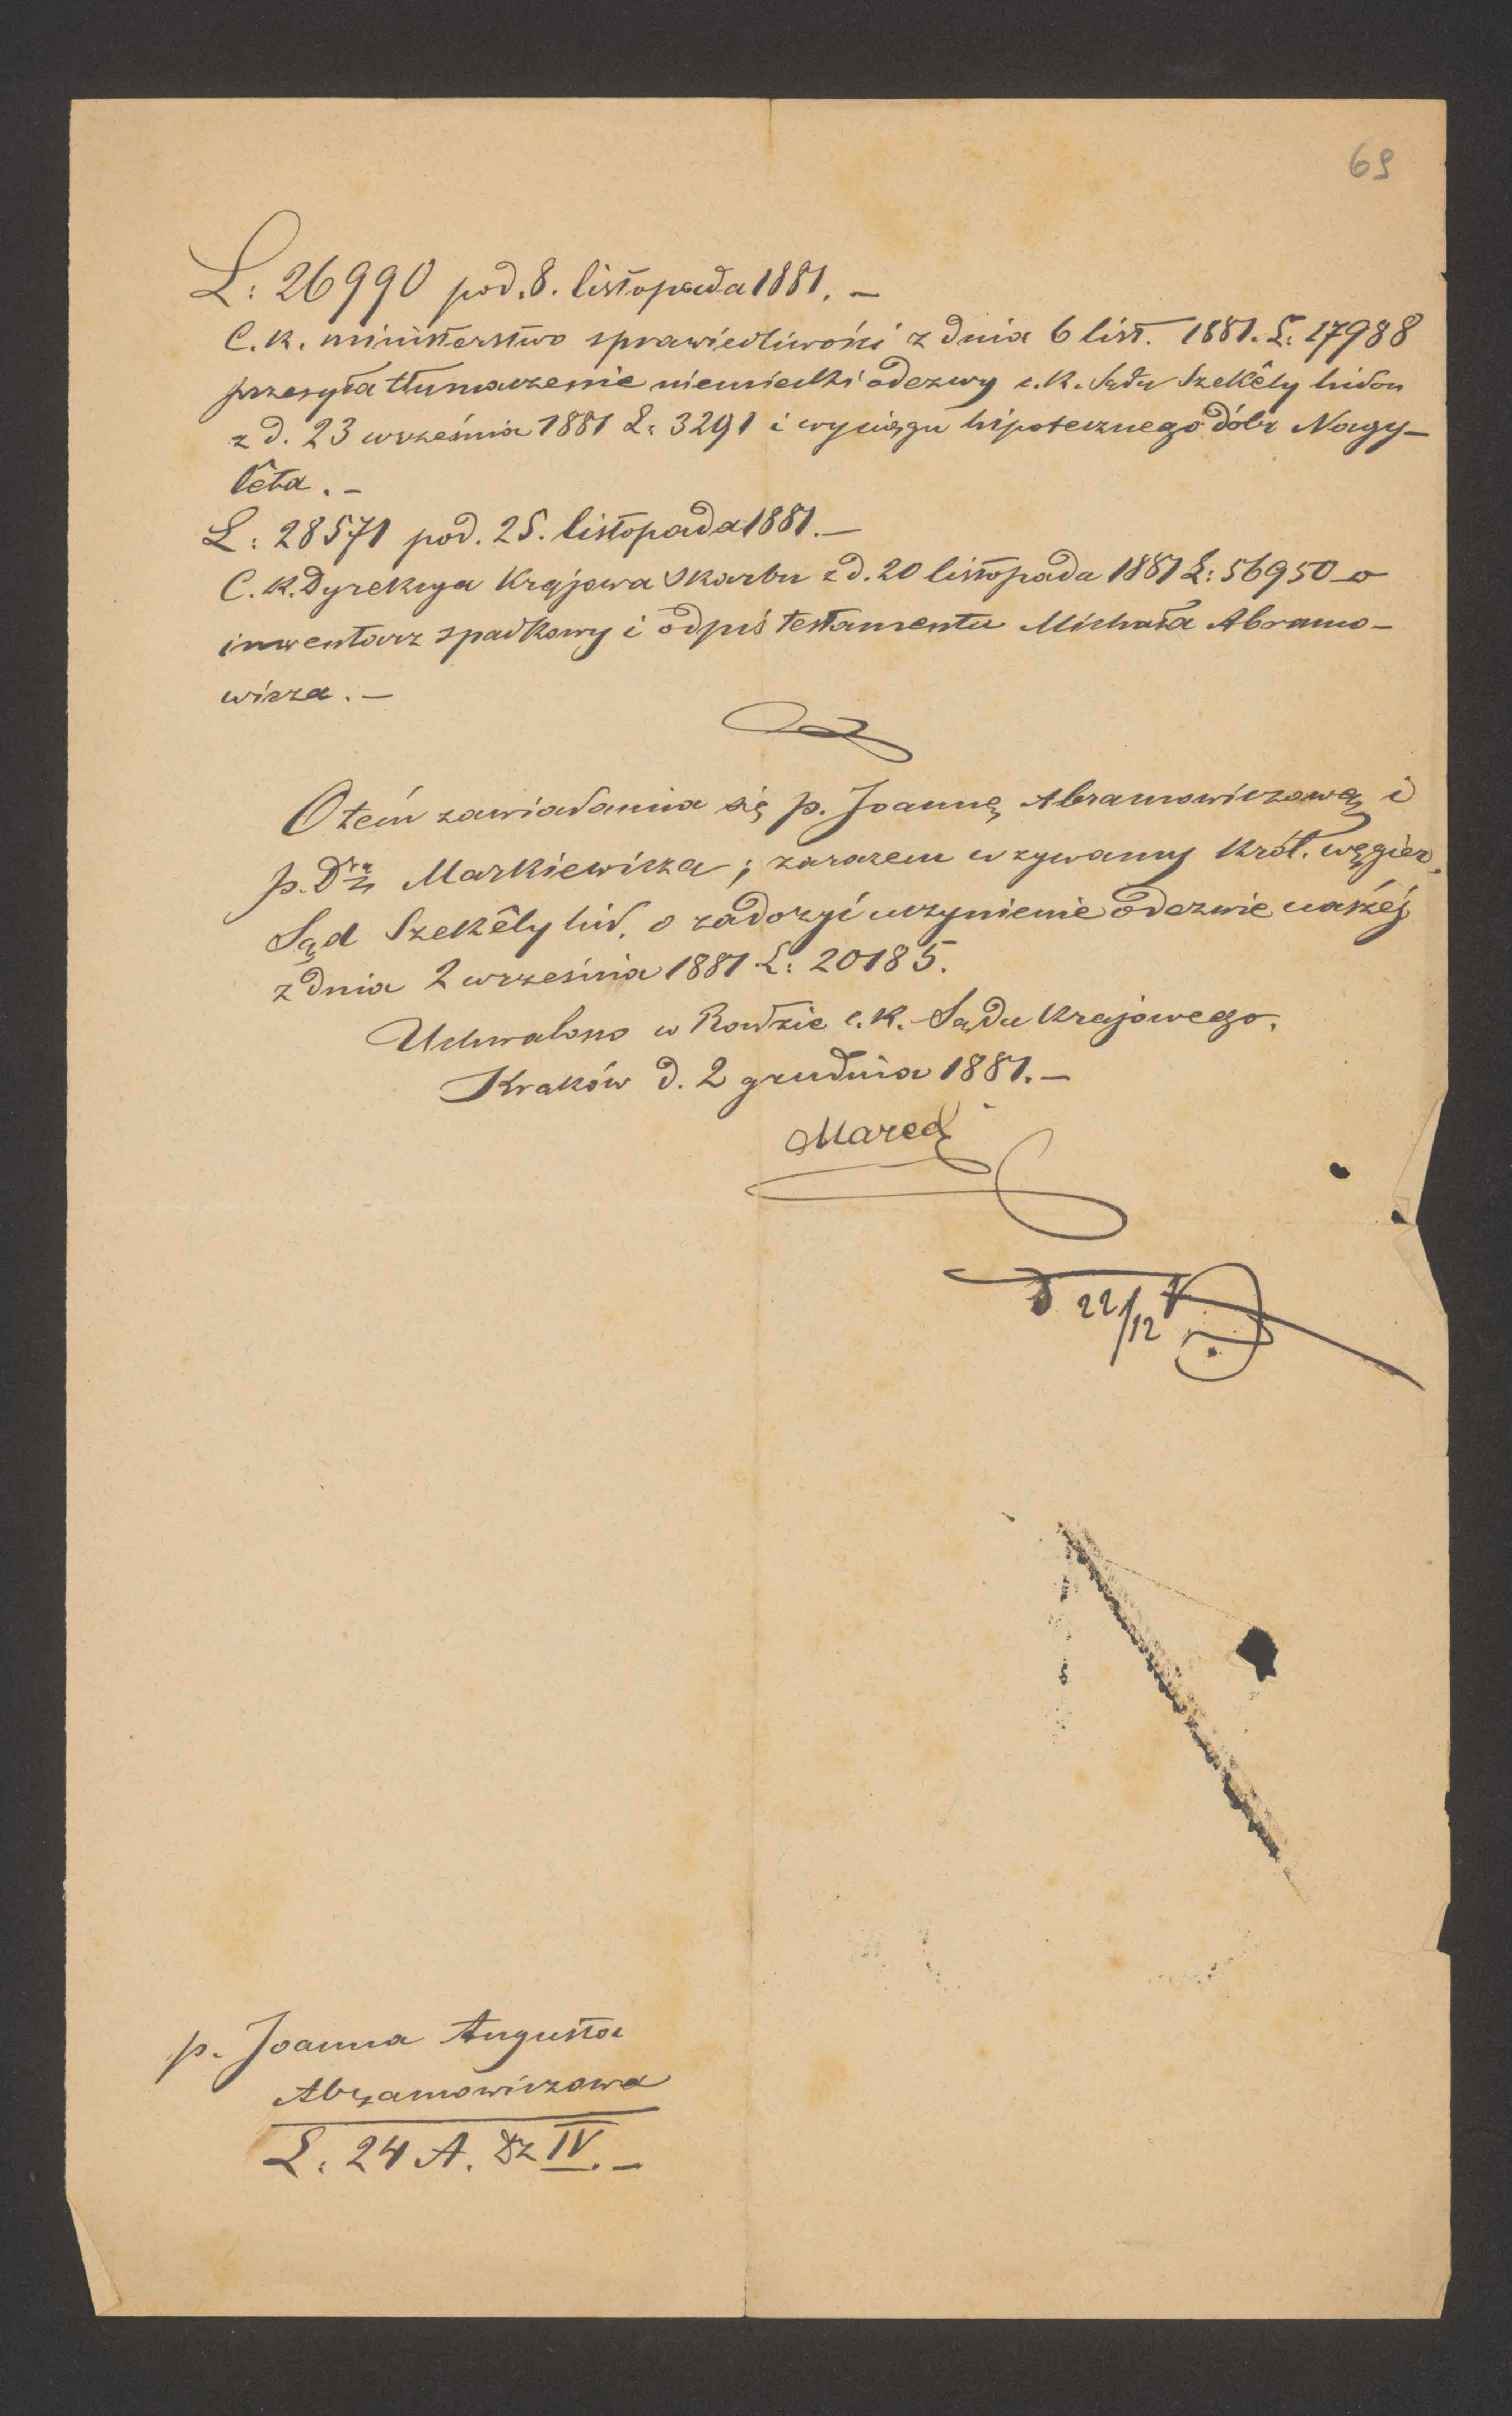 69
L: 26990 pod. 8. listopada 1881. –
C. k. ministerstwo sprawiedliwości z dnia 6 list. 1881. L: 17988
przesyła tłumaczenie niemiecki odezwy c. k. Sądu Szekêly hidon
z d. 23 września 1881 L: 3291 i wyciągu hipotecznego dóbr Nagy-
lêta. –
L: 28571 pod. 25. listopada 1881. –
C. k. Dyrekcya Krajowa Skarbu z d. 20 listopada 1881 L: 56950 o
inwentarz spadkowy i odpis testamentu Michała Abramo-
wicza. –
O tem zawiadamia się p. Joannę Abramowiczową i
p. Dra Markiewicza; zarazem wzywamy Król. węgier.
Sąd Szekêly hid. o zadosyć uczynienie odezwie naszéj
z dnia 2 września 1881 L: 20185.
Uchwalono w Radzie c. k. Sądu Krajowego.
Kraków d. 2 grudnia 1881. –
22/12
p. Joanna Augusta
Abramowiczowa
L: 24 A. Dz IV. –